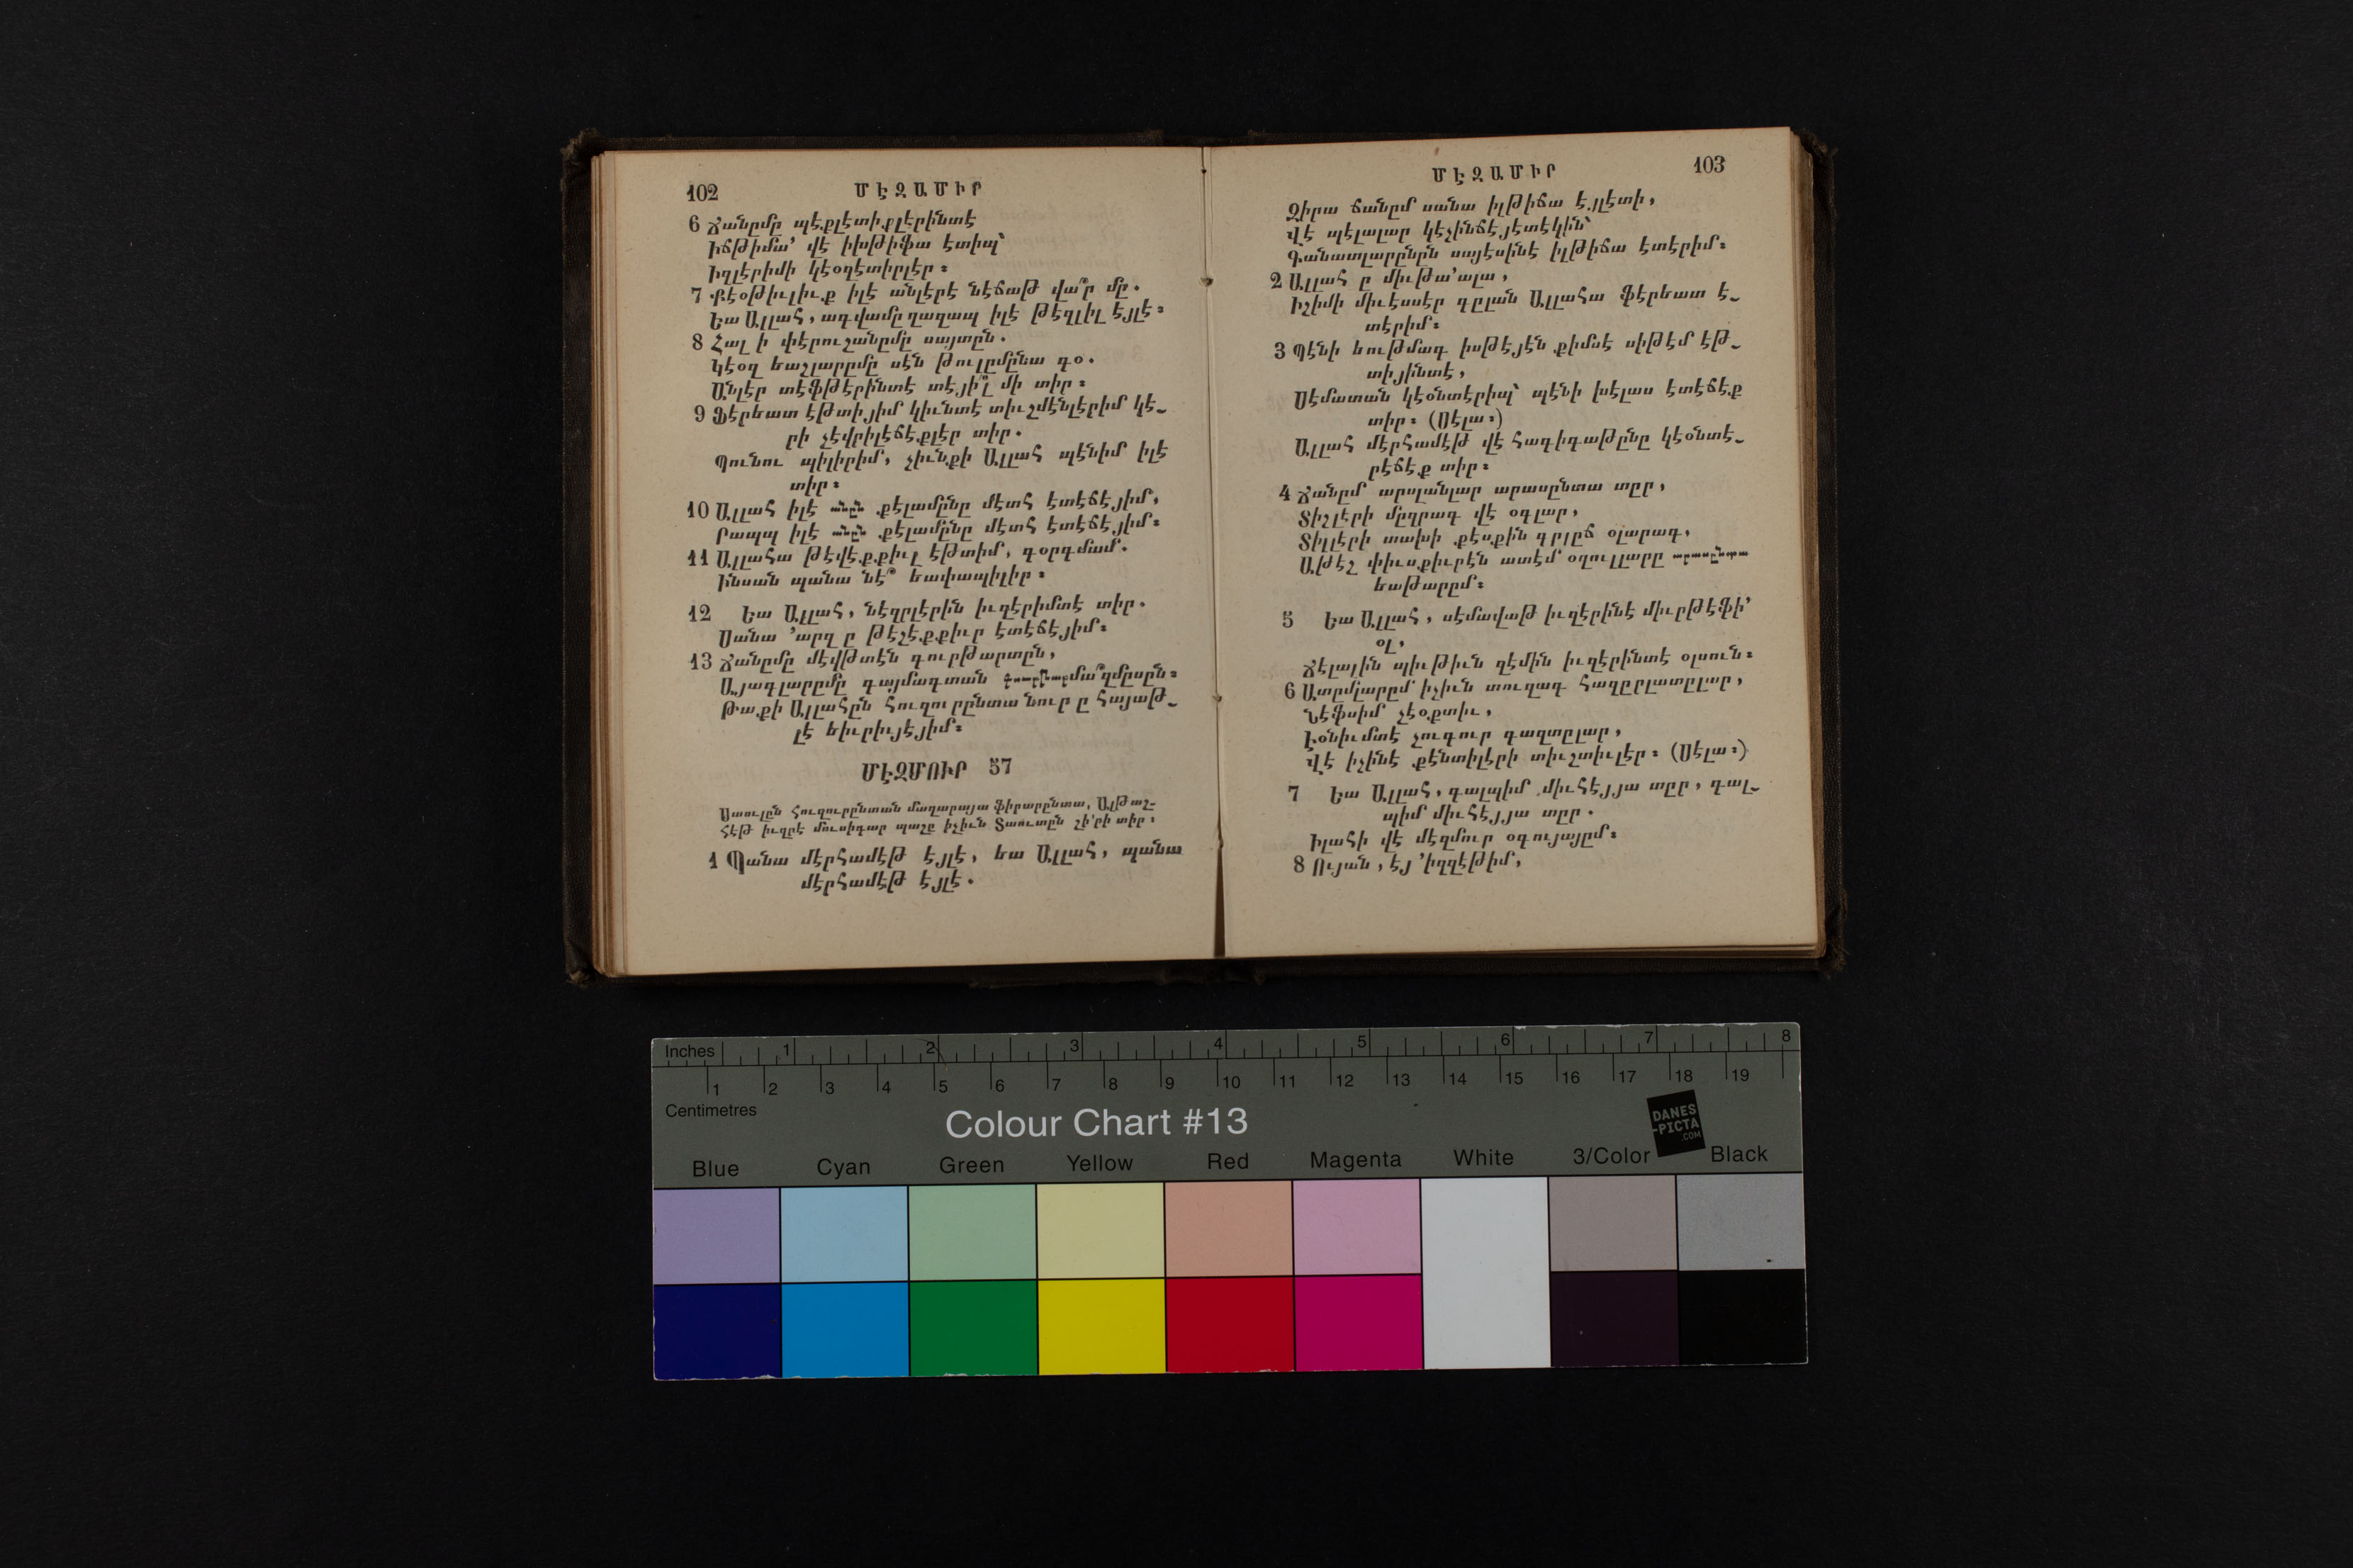 102 ՄԷԶԱՄԻՐ
6 Ճանըմը պէքլէտիքլէրինտէ
Իճթիմա՛ վէ իխթիֆա էտիպ՝
Իզլէրիմի կէօզէտիրլէր։
7 Քէօթիւլիւք իլէ անլէրէ նէճաթ վա՞ր մը.
Եա Ալլահ, ագվամը ղազապ իլէ թէզլիլ էյլէ։
8 Հալ ի փէրուշանըմը սայտըն.
Կէօզ եաշլարըմը սէն թուլըմընա գօ.
Անլէր տէֆթէրինտէ տէյի՞լ մի տիր։
9 Ֆէրեատ էթտիյիմ կիւնտէ տիւշմէնլէրիմ կէ-
րի չէվրիլէճէքլէր տիր.
Պունու պիլիրիմ, չիւնքի Ալլահ պէնիմ իլէ
տիր։
10 Ալլահ իլէ անըն քէլամընը մէտհ էտէճէյիմ,
Րապպ իլէ անըն քէլամընը մէտհ էտէճէյիմ։
11 Ալլահա թէվէքքիւլ էթտիմ, գօրգմամ.
Ինսան պանա նէ՞ եափապիլիր։
12 Եա Ալլահ, նէզրլէրին իւզէրիմտէ տիր.
Սանա ՚արզ ը թէշէքքիւր էտէճէյիմ։
13 Ճանըմը մէվթտէն գուրթարտըն,
Այագլարըմը գայմագտան մա՞զմըսըն։
Թաքի Ալլահըն հուզուրընտա նուր ը հայաթ-
լէ եիւրիւյէյիմ։
ՄԷԶՄՈՒՐ 57
Սաուլըն հուզուրընտան մաղարայա ֆիրարընտա, Ալթաշ-
հէթ իւզրէ մուսիգար պաշը իչիւն Տաուտըն շի՛րի տիր։
1 Պանա մէրհամէթ էյլէ, եա Ալլահ, պանա
մէրհամէթ էյլէ.
ՄԷԶԱՄԻՐ 103
Զիրա ճանըմ սանա իլթիճա էյլէտի,
Վէ պէլալար կէչինճէյէտէկին՝
Գանատլարընըն սայէսինէ իլթիճա էտէրիմ։
2 Ալլահ ը միւթա՛ալա,
Իշիմի միւէսսէր գըլան Ալլահա ֆէրեատ է-
տէրիմ։
3 Պէնի եութմագ իսթէյէն քիմսէ սիթէմ էթ-
տիյինտէ,
Սէմատան կէօնտէրիպ՝ պէնի խէլաս էտէճէք
տիր։ (Սէլա։)
Ալլահ մէրհամէթ վէ հագիգաթընը կէօնտէ-
րէճէք տիր։
4 Ճանըմ արսլանլար արասընտա տըր,
Տիշլէրի մըզրագ վէ օգլար,
Տիլլէրի տախի քէսքին գըլըճ օլարագ,
Աթէշ փիւսքիւրէն ատէմ օղուլլարը արասընտա
եաթարըմ։
5 Եա Ալլահ, սէմավաթ իւզէրինէ միւրթէֆի՛
օլ,
Ճէլալին պիւթիւն զէմին իւզէրինտէ օլսուն։
6 Ատըմլարըմ իչիւն տուզագ հազըրլատըլար,
Նէֆսիմ չէօքտիւ,
Էօնիւմտէ չուգուր գազտըլար,
Վէ իչինէ քէնտիլէրի տիւշտիւլէր։ (Սէլա։)
7 Եա Ալլահ, գալպիմ միւհէյյա տըր, գալ-
պիմ միւհէյյա տըր.
Իլահի վէ մէզմուր օգույայըմ։
8 Ույան, էյ ՚իզզէթիմ,
Inches 1 2 3 4 5 6 7 8
1 2 3 4 5 6 7 8 9 10 11 12 13 14 15 16 17 18 19
Centimetres
Colour Chart #13
DANES
-PICTA
.COM
Blue Cyan Green Yellow Red Magenta White 3/Color Black